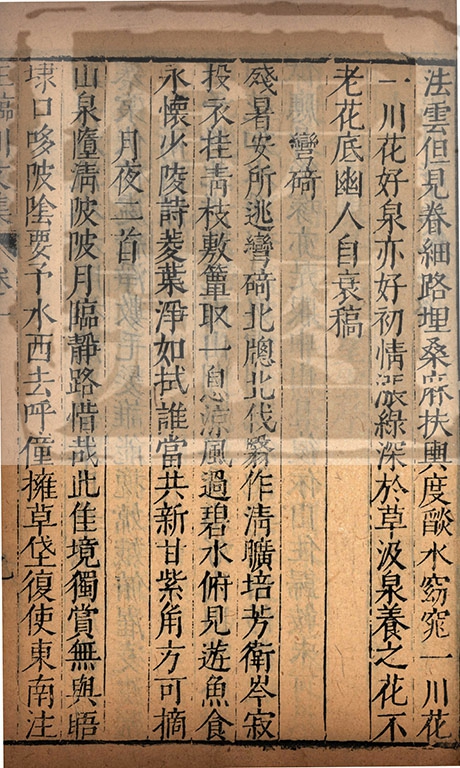 法雲但見眷細路埋桑麻扶輿度燄水窈窕一川花
一川花好泉亦好初情漲綠深於草汲泉養之花不
老花底幽人自衰稿
彎碕
殘暑安所逃彎碕北牕北伐翳作清曠培芳衛岑寂
投衣挂青枝敷簟取一息涼風過碧水俯見遊魚食
永懷少陵詩菱葉淨如拭誰當共新甘紫角方可摘
月夜二首
山泉墮清陂陂月臨靜路惜哉此佳境獨賞無與晤
埭口哆陂陰要予水西去呼僮擁草垡復使東南注
王臨川文集